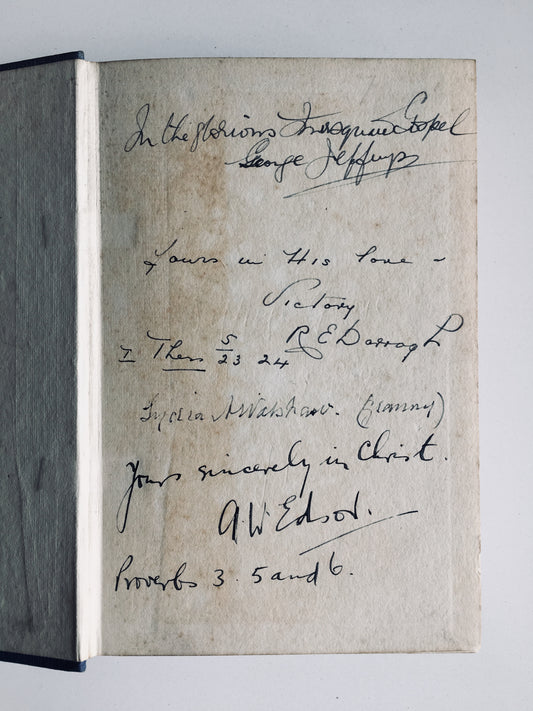 In the glorious Foursquare Gospel
George Jeffreys
Yours in His love -
Victory
R E Darragh
I Thess 5/23 24
Lydia A Walshaw. (Granny)
Yours sincerely in Christ.
A. W. Edsor.
Proverbs 3. 5 and 6.